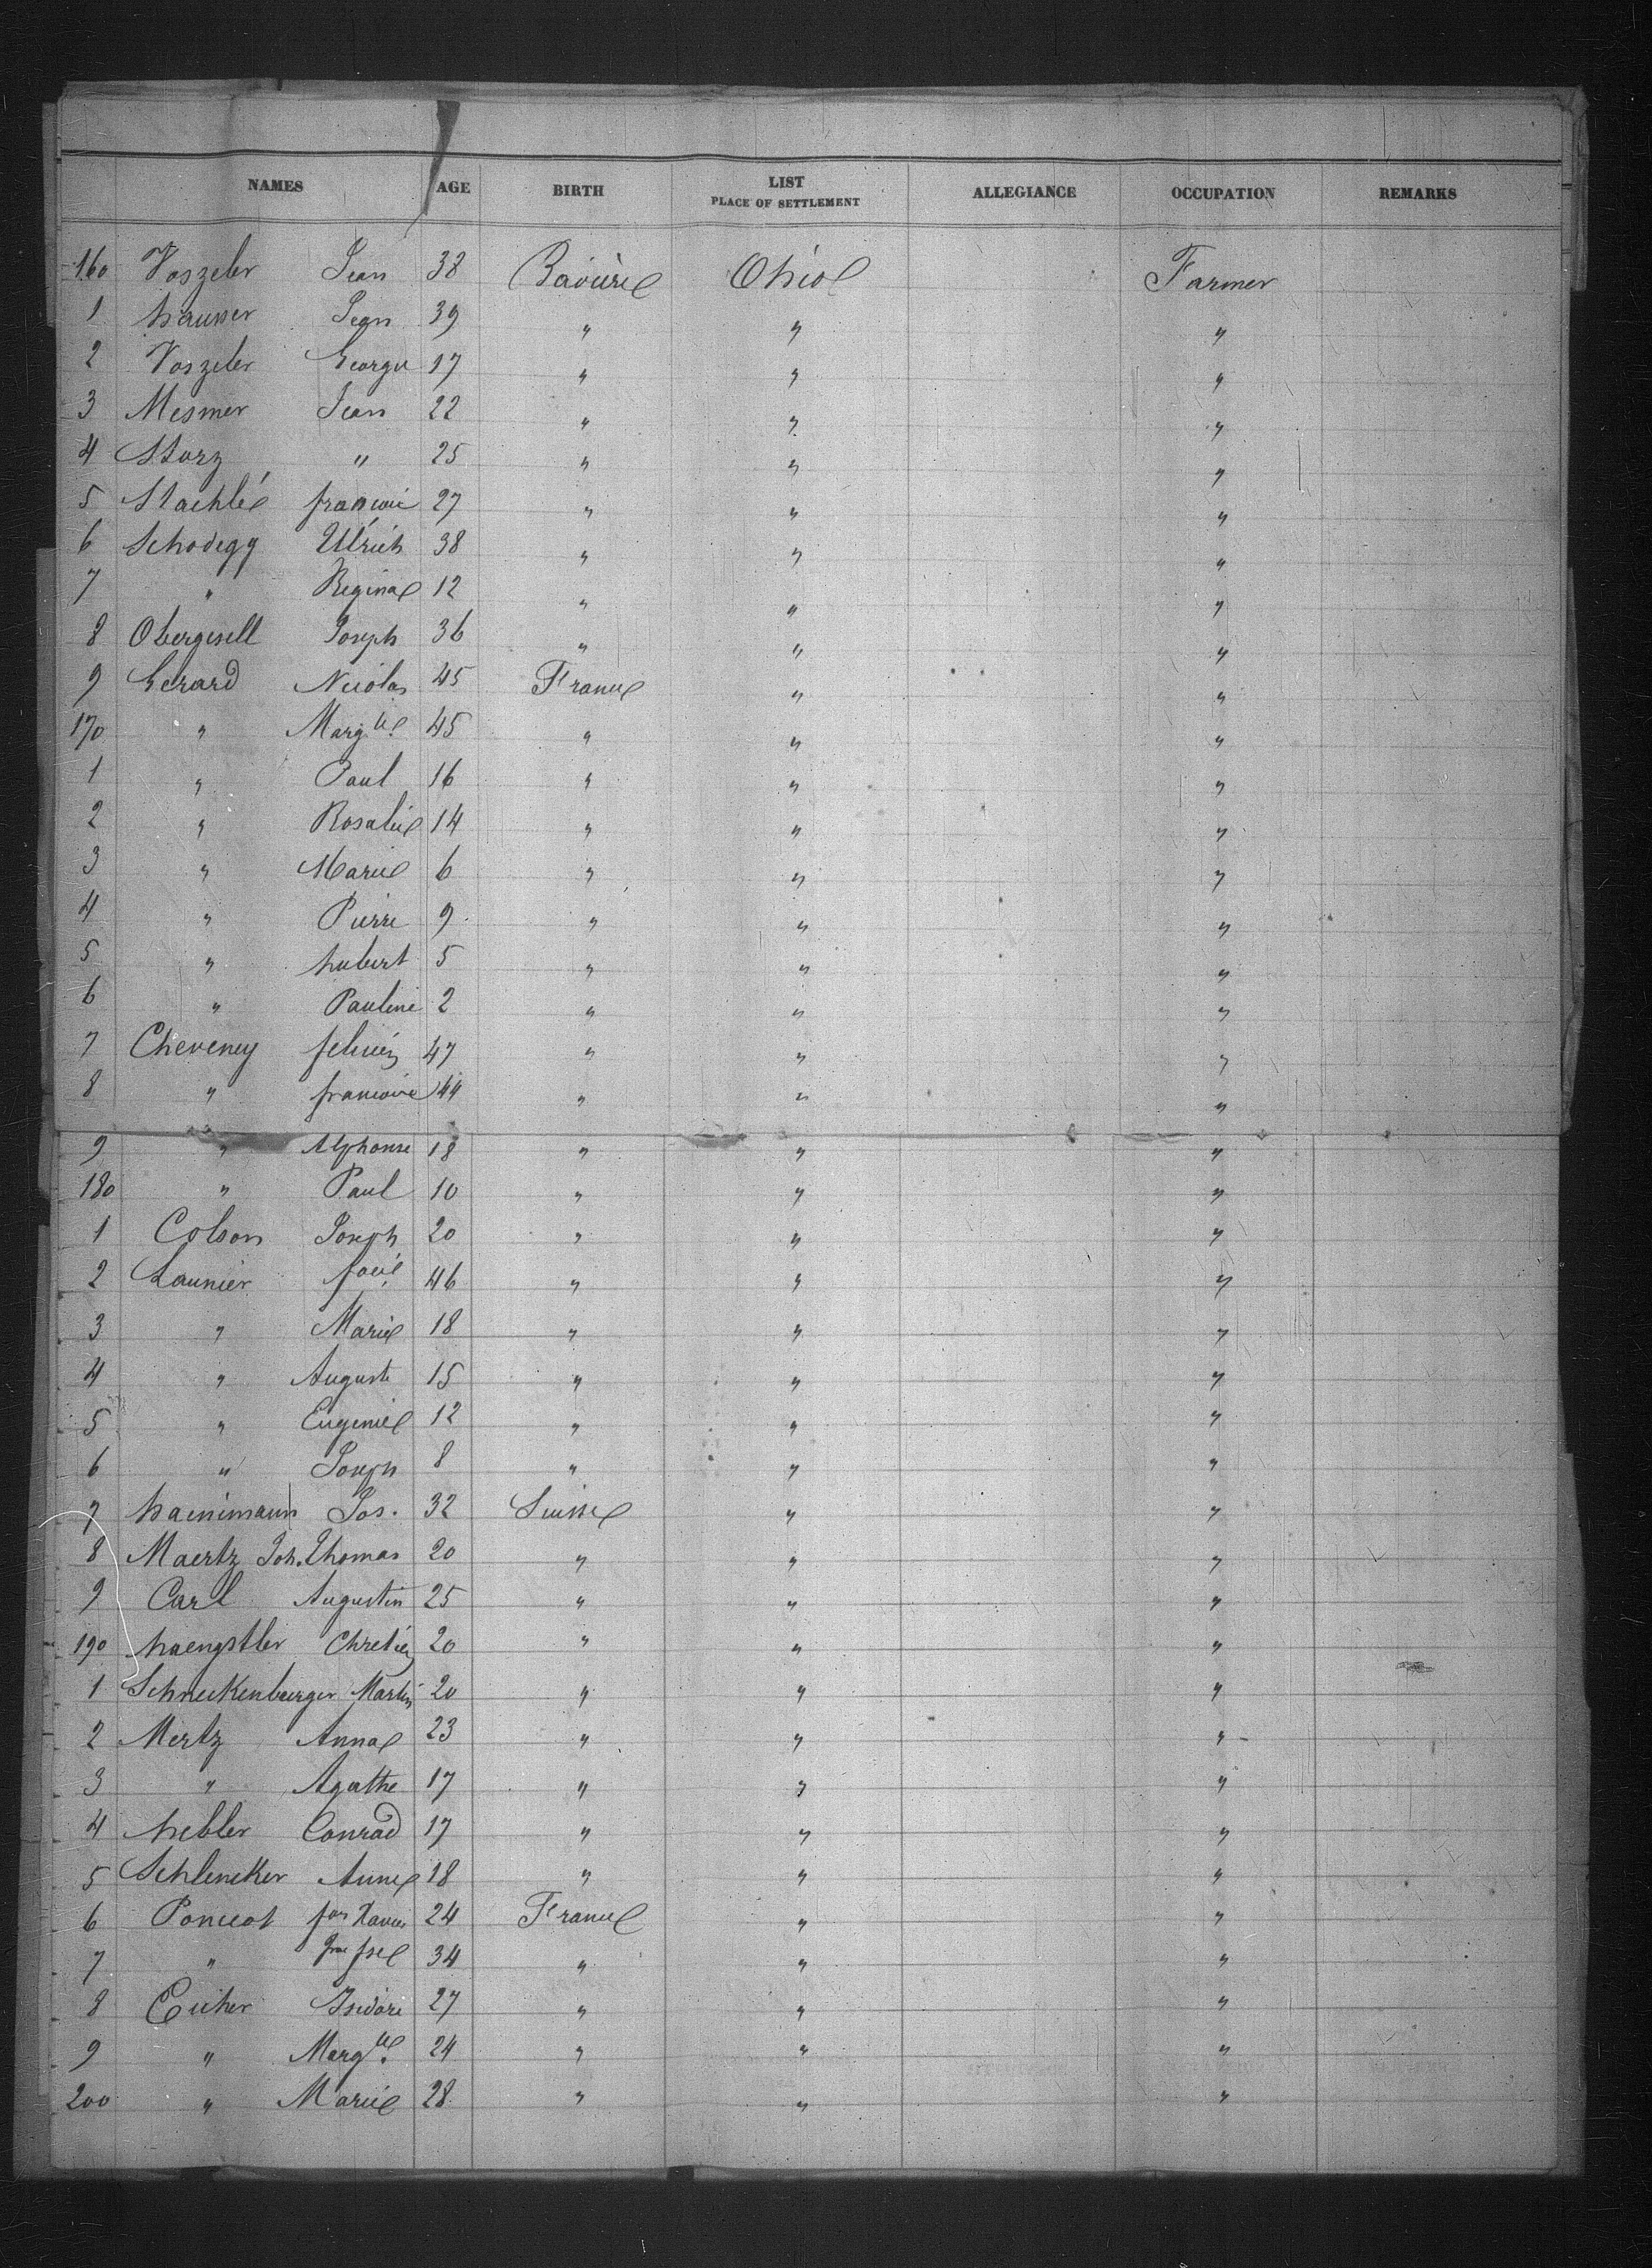 NAMES AGE BIRTH LIST PLACE OF SETTLEMENT ALLEGIANCE OCCUPATION REMARKS
160 Voszeler Jean 38 Bavière Ohio Farmer
1 hausser Jean 39 " " "
2 Voszeler George 17 " " "
3 Mesmer Jean 22 " " "
4 Storz " 25 " " "
5 Staehlé 27 " " "
6 Schodegg Ulrich 38 " " "
7 " Regina 12 " " "
8 Obergesell Joseph 36 " " "
9 Gerard Nicolas 45 France " "
170 " Marg.te 45 " " "
1 " Paul 16 " " "
2 " Rosalie 14 " " "
3 " Marie 6 " " "
4 " Pierre 9 " " "
5 " hubert 5 " " "
6 " Pauline 2 " " "
7 Cheveney felicien 47 " " "
8 " francoise 44 " " "
9 " Alphonse 18 " " "
180 " Paul 10 " " "
1 Colson Joseph 20 " " "
2 Launier 46 " " "
3 " Marie 18 " " "
4 " Auguste 15 " " "
5 " Eugenie 12 " " "
6 " Joseph 8 " " "
7 hainimann Jos. 32 Suisse " "
8 Maertz Joh. Thomas 20 " " "
9 Carl Augustin 25 " " "
190 haengstler Chretien 20 " " "
1 Schneckenburger Martin 20 " " "
2 Mertz Anna 23 " " "
3 " Agathe 17 " " "
4 hebler Conrad 17 " " "
5 Schlencker Anne 18 " " "
6 Ponceot fois Xavier 24 France " "
7 " 34 " " "
8 Eicher Isidore 27 " " "
9 " Marg.te 24 " " "
200 " Marie 28 " " "